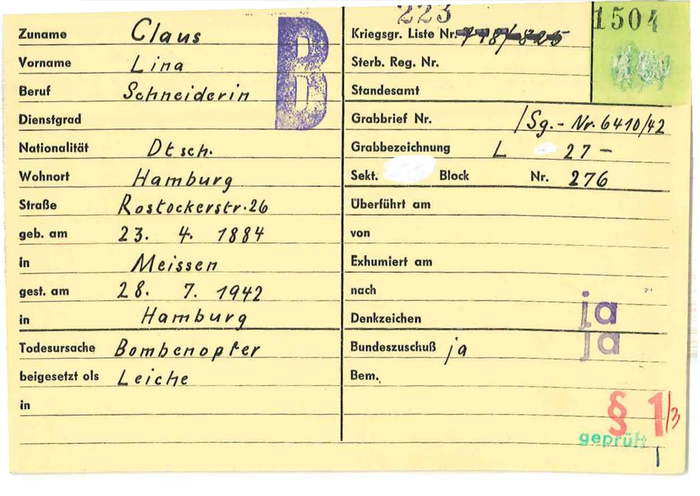 Zuname Claus
Vorname Lina
Beruf Schneiderin
Dienstgrad
Nationalität Dtsch.
Wohnort Hamburg
Straße Rostockerstr. 26
geb. am 23. 4. 1884
in Meissen
gest. am 28. 7. 1942
in Hamburg
Todesursache Bombenopfer
beigesetzt als Leiche
in
B
223
Kriegsgr. Liste Nr.
1504
Sterb. Reg. Nr.
Standesamt
Grabbrief Nr. /Sg.- Nr. 6410/42
Grabbezeichnung L 27 -
Sekt. Block Nr. 276
Überführt am
von
Exhumiert am
nach
Denkzeichen ja
Bundeszuschuß ja ja
Bem.
§ 1/3
geprüft